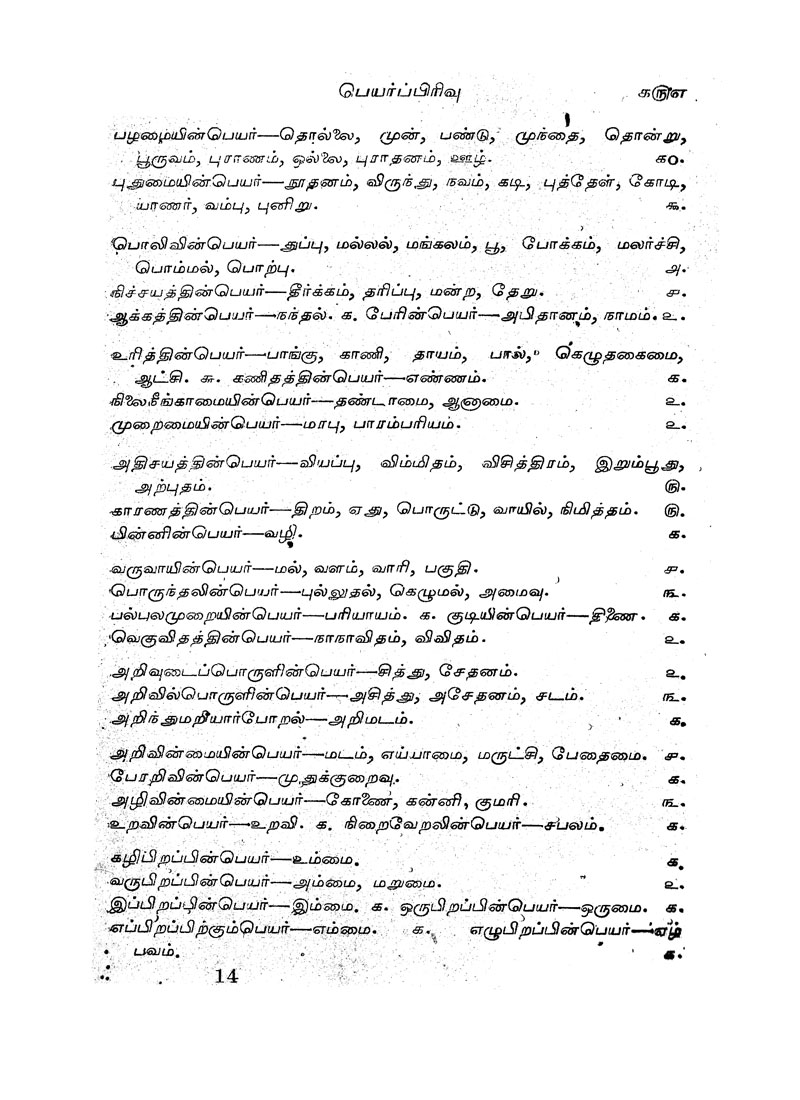 பெயர்ப்பிரிவு ௧௫௭
பழமையின்பெயர்—தொல்லை, முன், பண்டு, முந்தை, தொன்று,
பூருவம், புராணம், ஒல்லை, புராதனம், ஊழ். ௧௦.
புதுமையின்பெயர்—நூதனம், விருந்து, நவம், கடி, புத்தேள், கோடி,
யாணர், வம்பு, புனிறு. ௯.
பொலிவின்பெயர்—துப்பு, மல்லல், மங்கலம், பூ, போக்கம், மலர்ச்சி,
பொம்மல், பொற்பு. ௮.
நிச்சயத்தின்பெயர்—தீர்க்கம், தரிப்பு, மன்ற, தேறு. ௪.
ஆக்கத்தின்பெயர்—நந்தல். ௧. பேரின்பெயர்—அபிதானம், நாமம். ௨.
உரித்தின்பெயர்—பாங்கு, காணி, தாயம், பால், கெழுதகைமை,
ஆட்சி. ௬. கணிதத்தின்பெயர்—எண்ணம். ௧.
நிலைநீங்காமையின்பெயர்—தண்டாமை, ஆனாமை. ௨.
முறைமையின்பெயர்—மரபு, பாரம்பரியம். ௨.
அதிசயத்தின்பெயர்—வியப்பு, விம்மிதம், விசித்திரம், இறும்பூது,
அற்புதம். ௫.
காரணத்தின்பெயர்—திறம், ஏது, பொருட்டு, வாயில், நிமித்தம். ௫.
பின்னின்பெயர்—வழி. ௧.
வருவாயின்பெயர்—மல், வளம், வாரி, பகுதி. ௪.
பொருந்தலின்பெயர்—புல்லுதல், கெழுமல், அமைவு. ௩.
பல்புலமுறையின்பெயர்—பரியாயம். ௧. குடியின்பெயர்—திணை. ௧.
வெகுவிதத்தின்பெயர்—நாநாவிதம், விவிதம். ௨.
அறிவுடைப்பொருளின்பெயர்—சித்து, சேதனம். ௨.
அறிவில்பொருளின்பெயர்—அசித்து, அசேதனம், சடம். ௩.
அறிந்துமறியார்போறல்—அறிமடம். ௧.
அறிவின்மையின்பெயர்—மடம், எய்யாமை, மருட்சி, பேதைமை. ௪.
பேரறிவின்பெயர்—முதுக்குறைவு. ௧.
அழிவின்மையின்பெயர்—கோணை, கன்னி, குமரி. ௩.
உறவின்பெயர்—உறவி. ௧. நிறைவேறலின்பெயர்—சபலம். ௧.
கழிபிறப்பின்பெயர்—உம்மை. ௧.
வருபிறப்பின்பெயர்—அம்மை, மறுமை. ௨.
இப்பிறப்பின்பெயர்—இம்மை. ௧. ஒருபிறப்பின்பெயர்—ஒருமை. ௧.
எப்பிறப்பிற்கும்பெயர்—எம்மை. ௧. எழுபிறப்பின்பெயர்—எழ்
பவம். ௧.
14